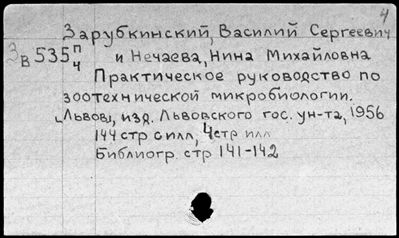 4
Зарубкинский, Василий Сергеевич
Зв535п/4 и Нечаева, Нина Михайловна
Практическое руководство по
зоотехнической микробиологии.
[Львов], изд. Львовского гос. ун-та, 1956
144 стр с илл, 4 стр илл
Библиогр. стр 141-142